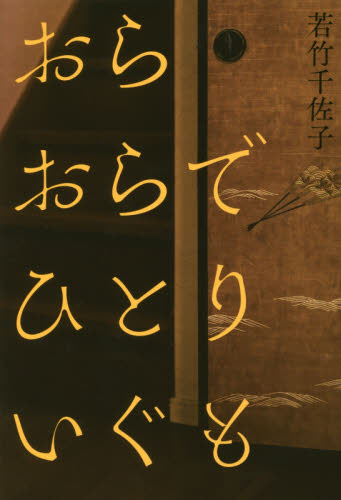 おらおらで
ひとりいぐも
若竹千佐子